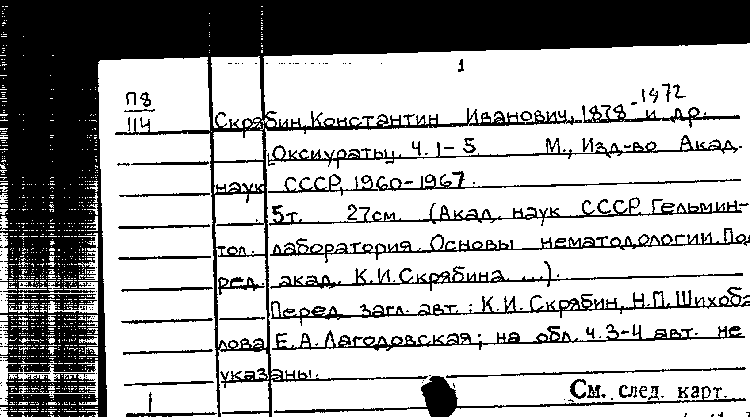 1
П8
114
Скрябин, Константин Иванович, 1878-1972 и др.
Оксиураты. Ч. 1-5 М., Изд-во Акад.
наук СССР, 1960-1967.
5т. 27см. (Акад. наук СССР. Гельмин-
тол. лаборатория. Основы нематодологии. Под
ред. акад. К.И.Скрябина ...).
Перед загл. авт.: К.И. Скрябин, Н.П. Шихоба
лова Е.А. Лагодовская; на обл. ч. 3-4 авт. не
указаны.
См. след. карт.